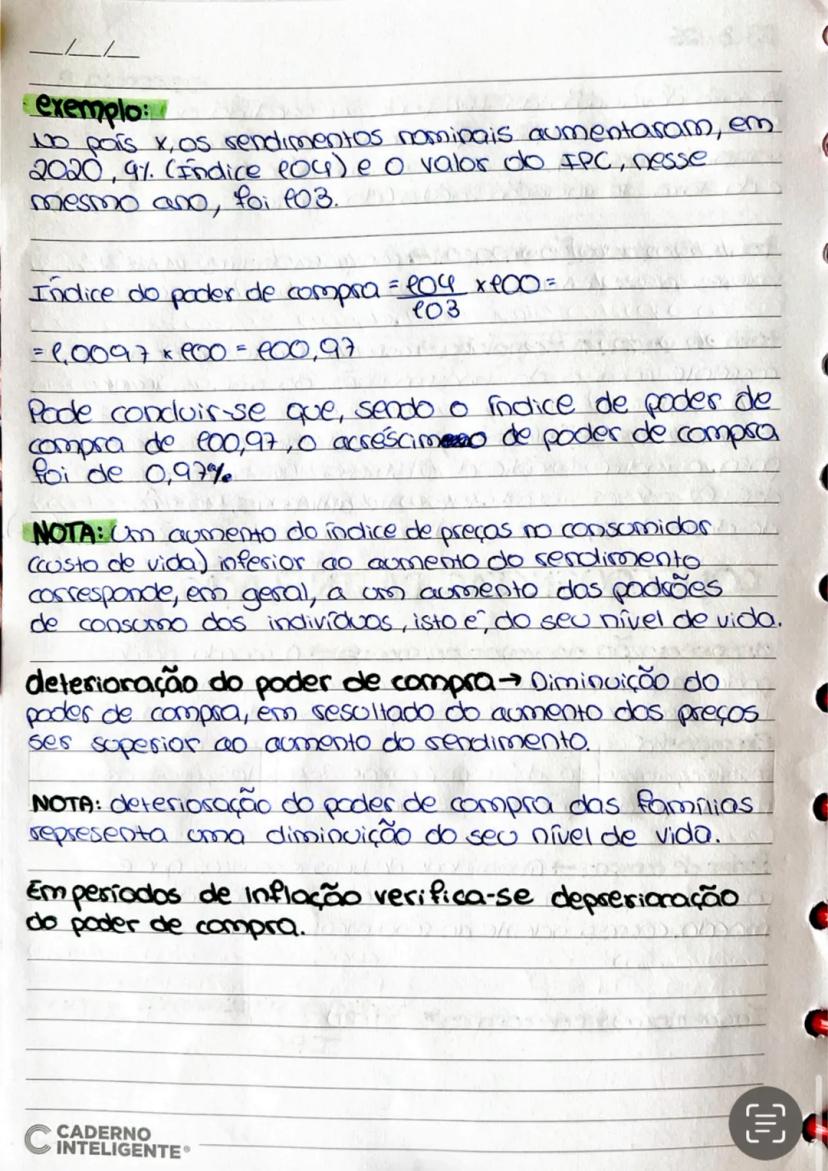 __/__/__
exemplo:
No país x, os rendimentos nominais aumentaram, em
2020, 4%. (Índice 104) e o valor do IPC, nesse
mesmo ano, foi 103.
Índice do poder de compra = 104/103 x 100 =
= 1,0097 x 100 = 100,97
Pode concluir-se que, sendo o índice de poder de
compra de 100,97, o acréscimo de poder de compra
foi de 0,97%
NOTA: Um aumento do índice de preços no consumidor
(custo de vida) inferior ao aumento do rendimento
corresponde, em geral, a um aumento dos padrões
de consumo dos indivíduos, isto é, do seu nível de vida.
deterioração do poder de compra → Diminuição do
poder de compra, em resultado do aumento dos preços
ser superior ao aumento do rendimento.
NOTA: deterioração do poder de compra das famílias
representa uma diminuição do seu nível de vida.
Em períodos de inflação verifica-se deprerioração
do poder de compra.
CADERNO
INTELIGENTE®